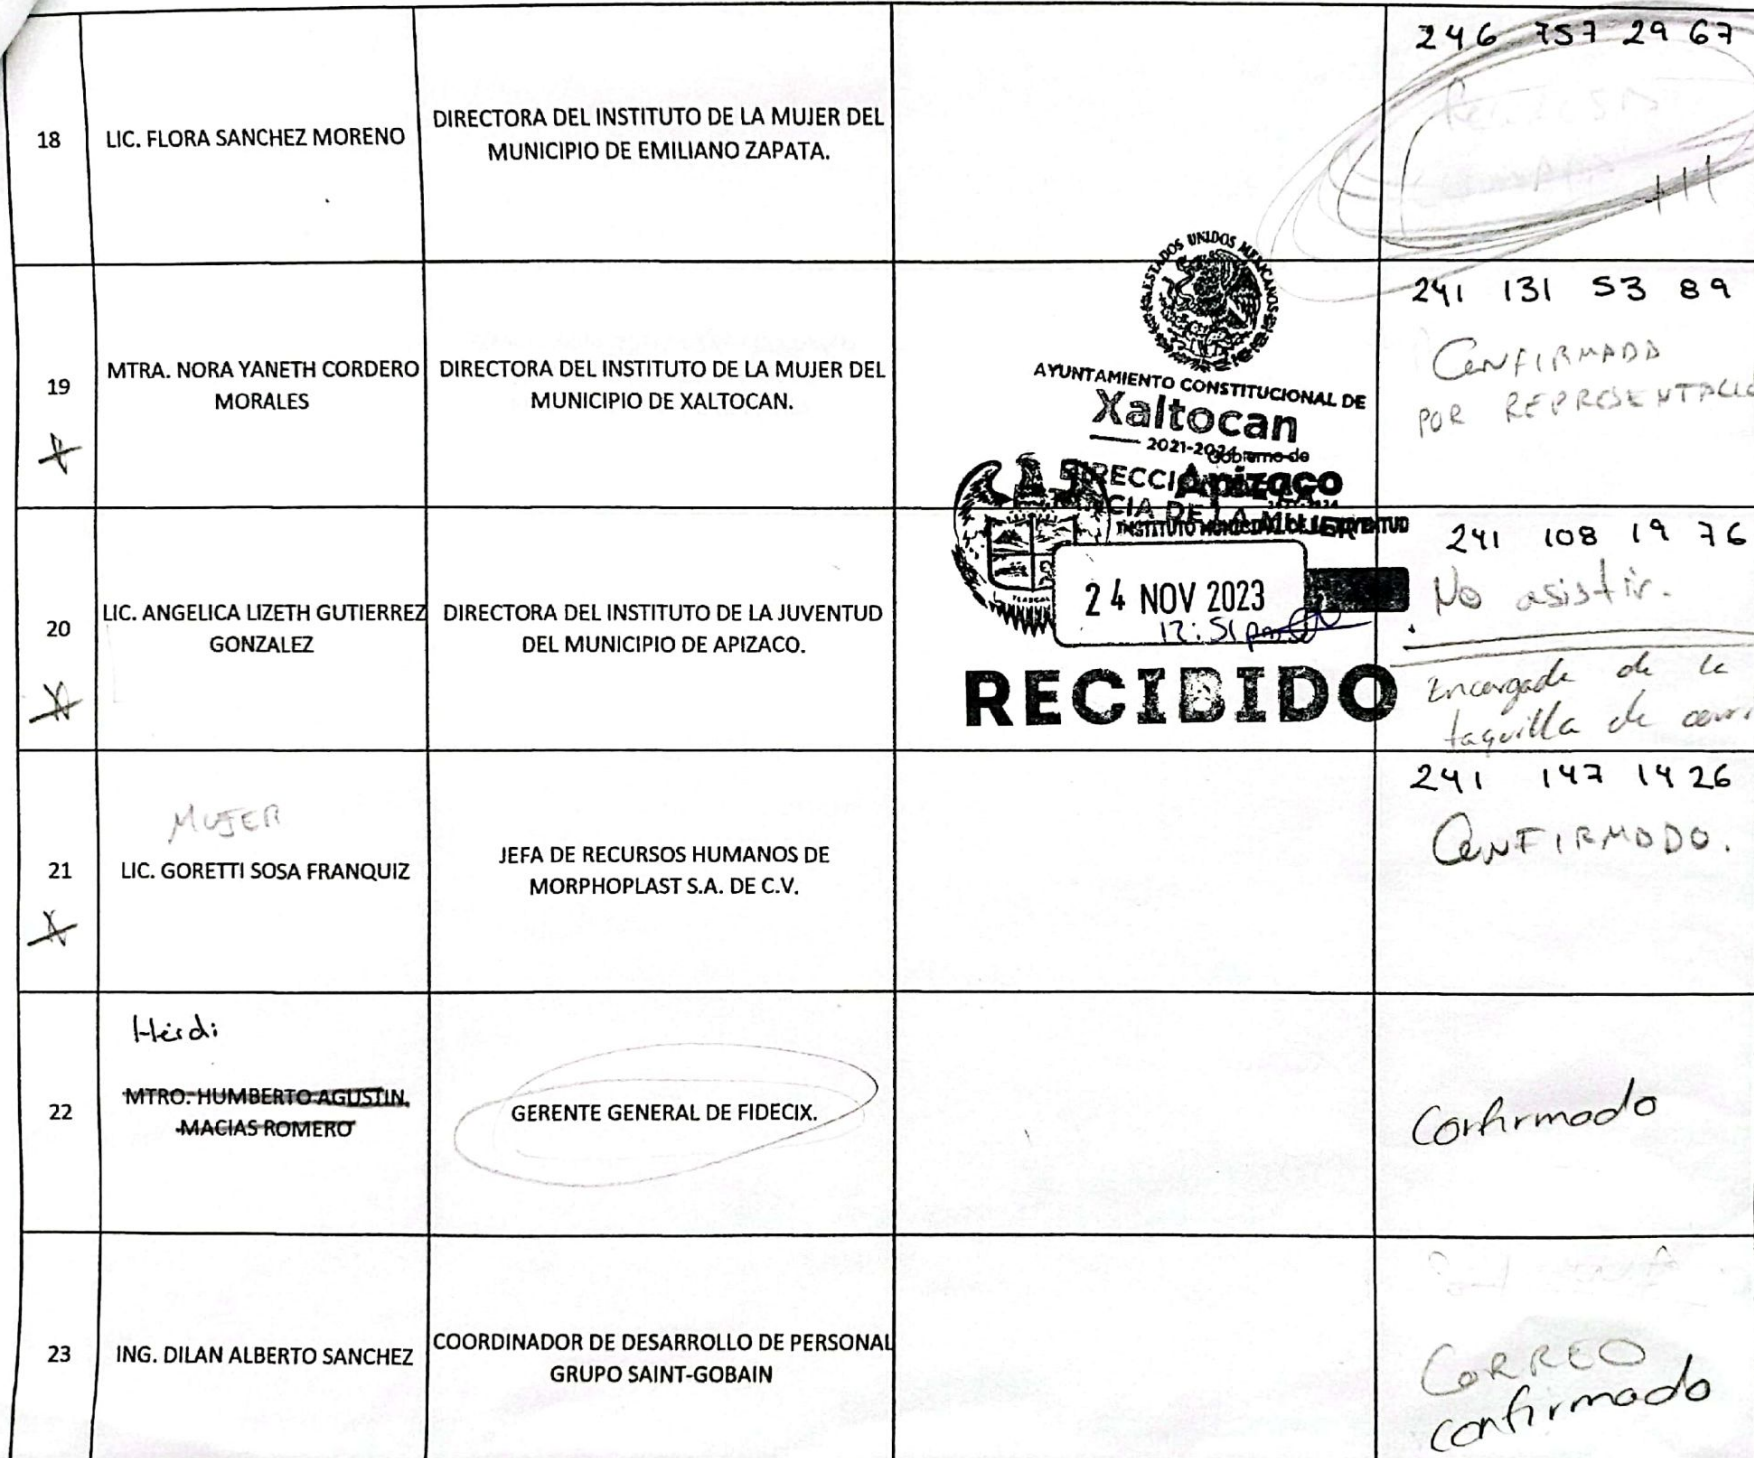 246 757 29 67
18
LIC. FLORA SANCHEZ MORENO
DIRECTORA DEL INSTITUTO DE LA MUJER DEL
MUNICIPIO DE EMILIANO ZAPATA.
19
MTRA. NORA YANETH CORDERO
MORALES
DIRECTORA DEL INSTITUTO DE LA MUJER DEL
MUNICIPIO DE XALTOCAN.
ESTADOS UNIDOS MEXICANOS
AYUNTAMIENTO CONSTITUCIONAL DE
Xaltocan
2021-2024
241 131 53 89
CONFIRMADO
POR
20
LIC. ANGELICA LIZETH GUTIERREZ
GONZALEZ
DIRECTORA DEL INSTITUTO DE LA JUVENTUD
DEL MUNICIPIO DE APIZACO.
Gobierno de
Apizaco
24 NOV 2023
12:51
RECIBIDO
241 108 19 76
No asistir.
Encargada de la
taquilla de
21
MUJER
LIC. GORETTI SOSA FRANQUIZ
JEFA DE RECURSOS HUMANOS DE
MORPHOPLAST S.A. DE C.V.
241 147 14 26
CONFIRMADO.
22
Heidi
MTRO. HUMBERTO AGUSTIN
MACIAS ROMERO
GERENTE GENERAL DE FIDECIX.
Confirmado
23
ING. DILAN ALBERTO SANCHEZ
COORDINADOR DE DESARROLLO DE PERSONAL
GRUPO SAINT-GOBAIN
CORREO
confirmado